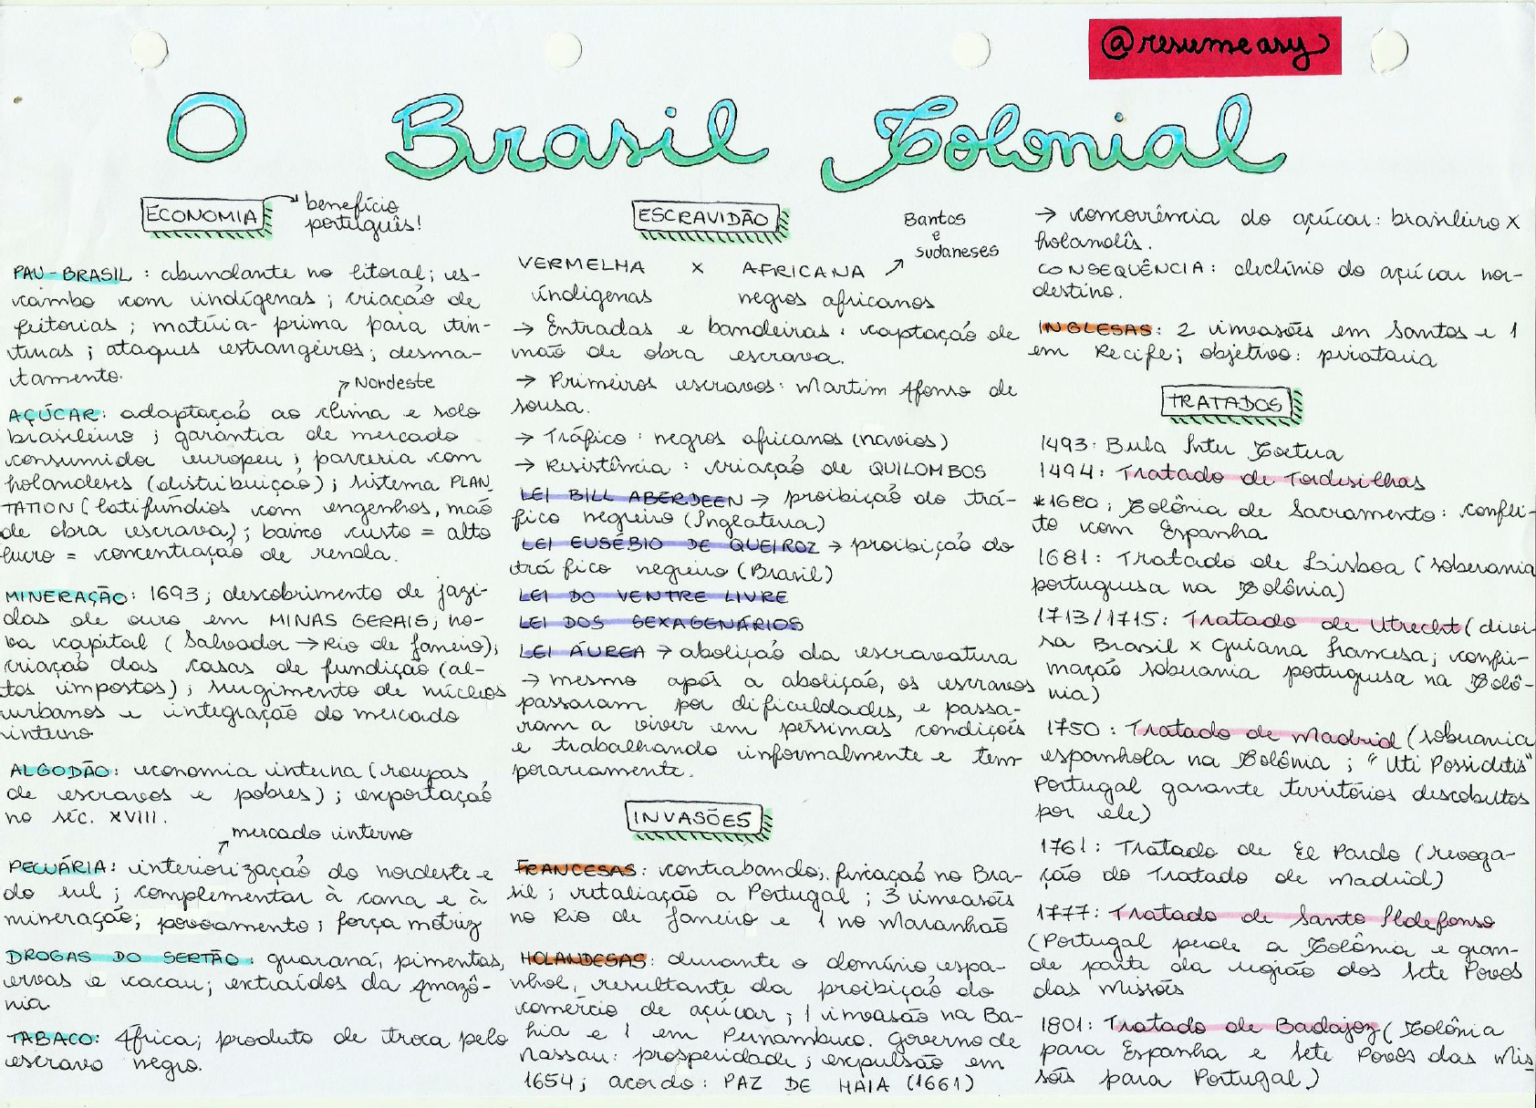 @resumeasy
O Brasil Colonial
ECONOMIA
benefício
português!
PAU-BRASIL: abundante no litoral; es-
cambo com indígenas; criação de
feitorias; matéria-prima para tin-
turas; ataques estrangeiros; desma-
tamento.
Nordeste
AÇÚCAR: adaptação ao clima e solo
brasileiro; garantia de mercado
consumidor europeu; parceria com
holandeses (distribuição); sistema PLAN
TATION (latifúndios com engenhos, mão
de obra escrava); baixo custo = alto
lucro = concentração de renda.
MINERAÇÃO: 1693; descobrimento de jazi-
das de ouro em MINAS GERAIS; no-
va capital (Salvador → Rio de Janeiro);
criação das casas de fundição (al-
tos impostos); surgimento de núcleos
urbanos e integração do mercado
interno
ALGODÃO: economia interna (roupas
de escravos e pobres); exportação
no séc. XVIII.
mercado interno
PECUÁRIA: interiorização do nordeste e
do sul; complementar à cana e à
mineração; povoamento; força motriz
DROGAS DO SERTÃO: guaraná, pimentas,
ervas e cacau; extraídos da Amazô-
nia
TABACO: África; produto de troca pelo
escravo negro.
ESCRAVIDÃO
Bantos
e
sudaneses
VERMELHA x AFRICANA
indígenas negros africanos
→ Entradas e bandeiras: captação de
mão de obra escrava.
→ Primeiros escravos: Martim Afonso de
Sousa.
→ Tráfico: negros africanos (navios)
→ Resistência: criação de QUILOMBOS
LEI BILL ABERDEEN → proibição do trá-
fico negreiro (Inglaterra)
LEI EUSÉBIO DE QUEIROZ → proibição do
tráfico negreiro (Brasil)
LEI DO VENTRE LIVRE
LEI DOS SEXAGENÁRIOS
LEI ÁUREA → abolição da escravatura
→ mesmo após a abolição, os escravos
passaram por dificuldades, e passa-
ram a viver em péssimas condições
e trabalhando informalmente e tem
porariamente.
INVASÕES
FRANCESAS: contrabando; fixação no Bra-
sil; retaliação a Portugal; 3 invasões
no Rio de Janeiro e 1 no Maranhão
HOLANDESAS: durante o domínio espa-
nhol, resultante da proibição do
comércio de açúcar; 1 invasão na Ba-
hia e 1 em Pernambuco. Governo de
Nassau: prosperidade; expulsão em
1654; acordo: PAZ DE HAIA (1661)
→ concorrência do açúcar: brasileiro x
holandês.
CONSEQUÊNCIA: declínio do açúcar nor-
destino.
INGLESAS: 2 invasões em Santos e 1
em Recife; objetivo: pirataria
TRATADOS
1493: Bula Inter Coetera
1494: Tratado de Tordesilhas
*1680: Colônia de Sacramento: confli-
to com Espanha
1681: Tratado de Lisboa (soberania
portuguesa na Colônia)
1713/1715: Tratado de Utrecht (divi
sa Brasil x Guiana Francesa; confir-
mação soberania portuguesa na Colô-
nia)
1750: Tratado de Madrid (soberania
espanhola na Colônia; "Uti Possidetis"
Portugal garante territórios descobertos
por ele)
1761: Tratado de El Pardo (revoga-
ção do Tratado de Madrid)
1777: Tratado de Santo Ildefonso
(Portugal perde a Colônia e gran-
de parte da região dos Sete Povos
das Missões
1801: Tratado de Badajoz (Colônia
para Espanha e Sete Povos das Mis
sões para Portugal)